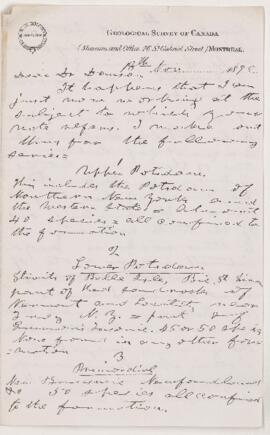 GEOLOGICAL SURVEY OF CANADA
(Museum and Office, 76 St. Gabriel Street) MONTREAL,
Nov 187
Dear Dr Dawson
It happens that I am
just now working at the
subject to which your
note refers. I make out
thus far the following
series:
Upper Potsdam.
This includes the Potsdam of
Northern New York and
the Western States or about
40 species = all confined to
the formation
2
Lower Potsdam
Straits of Belle Isle,
part of Red Sandrock of
Vermont and
Troy N. Y. = part of
Emmons's Taconic. 45 or 50
formation
3
Primordial
New Brunswick Newfoundland
50 species all confined
to the formation.